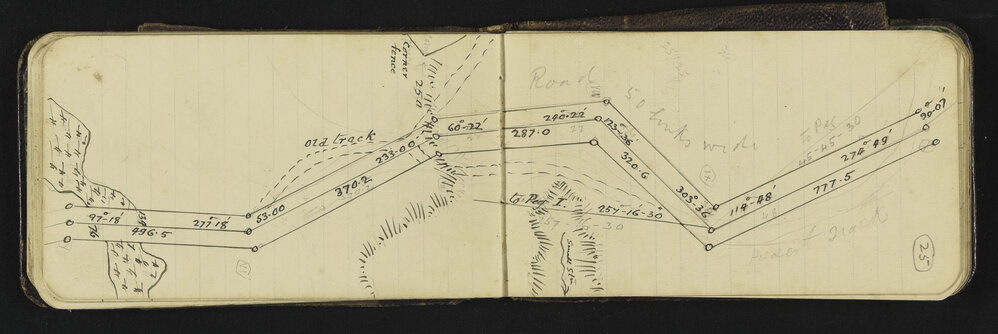 corner
fence
250
old track
97°-18'
277°18'
496.5
53.00
233.00
370.2
60°-22'
240-22'
287.0
Road
50 links wide
123°-36'
320.6
303°-36
114°-48'
274°49'
777.5
90.07'
to Peg
45-45-30
to Peg
257-16-30"
Small Str
track
25